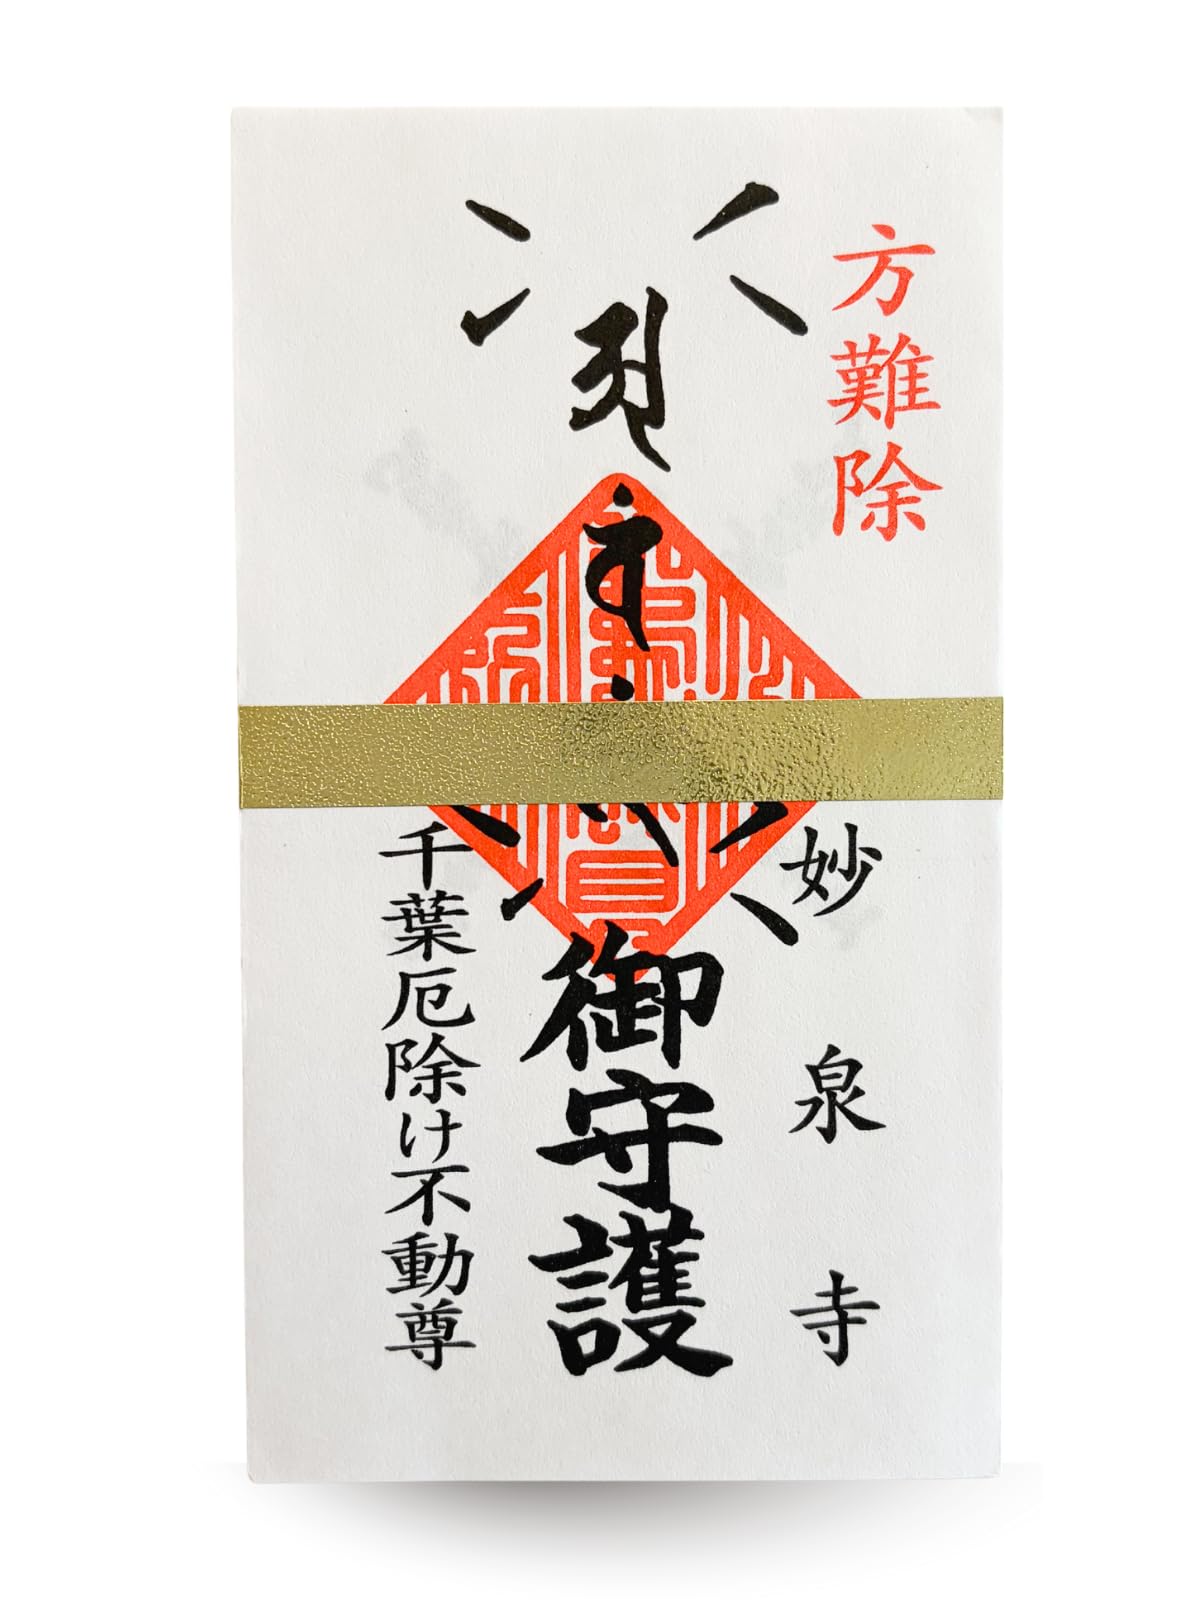 方難除
妙泉寺
御守護
千葉厄除け不動尊